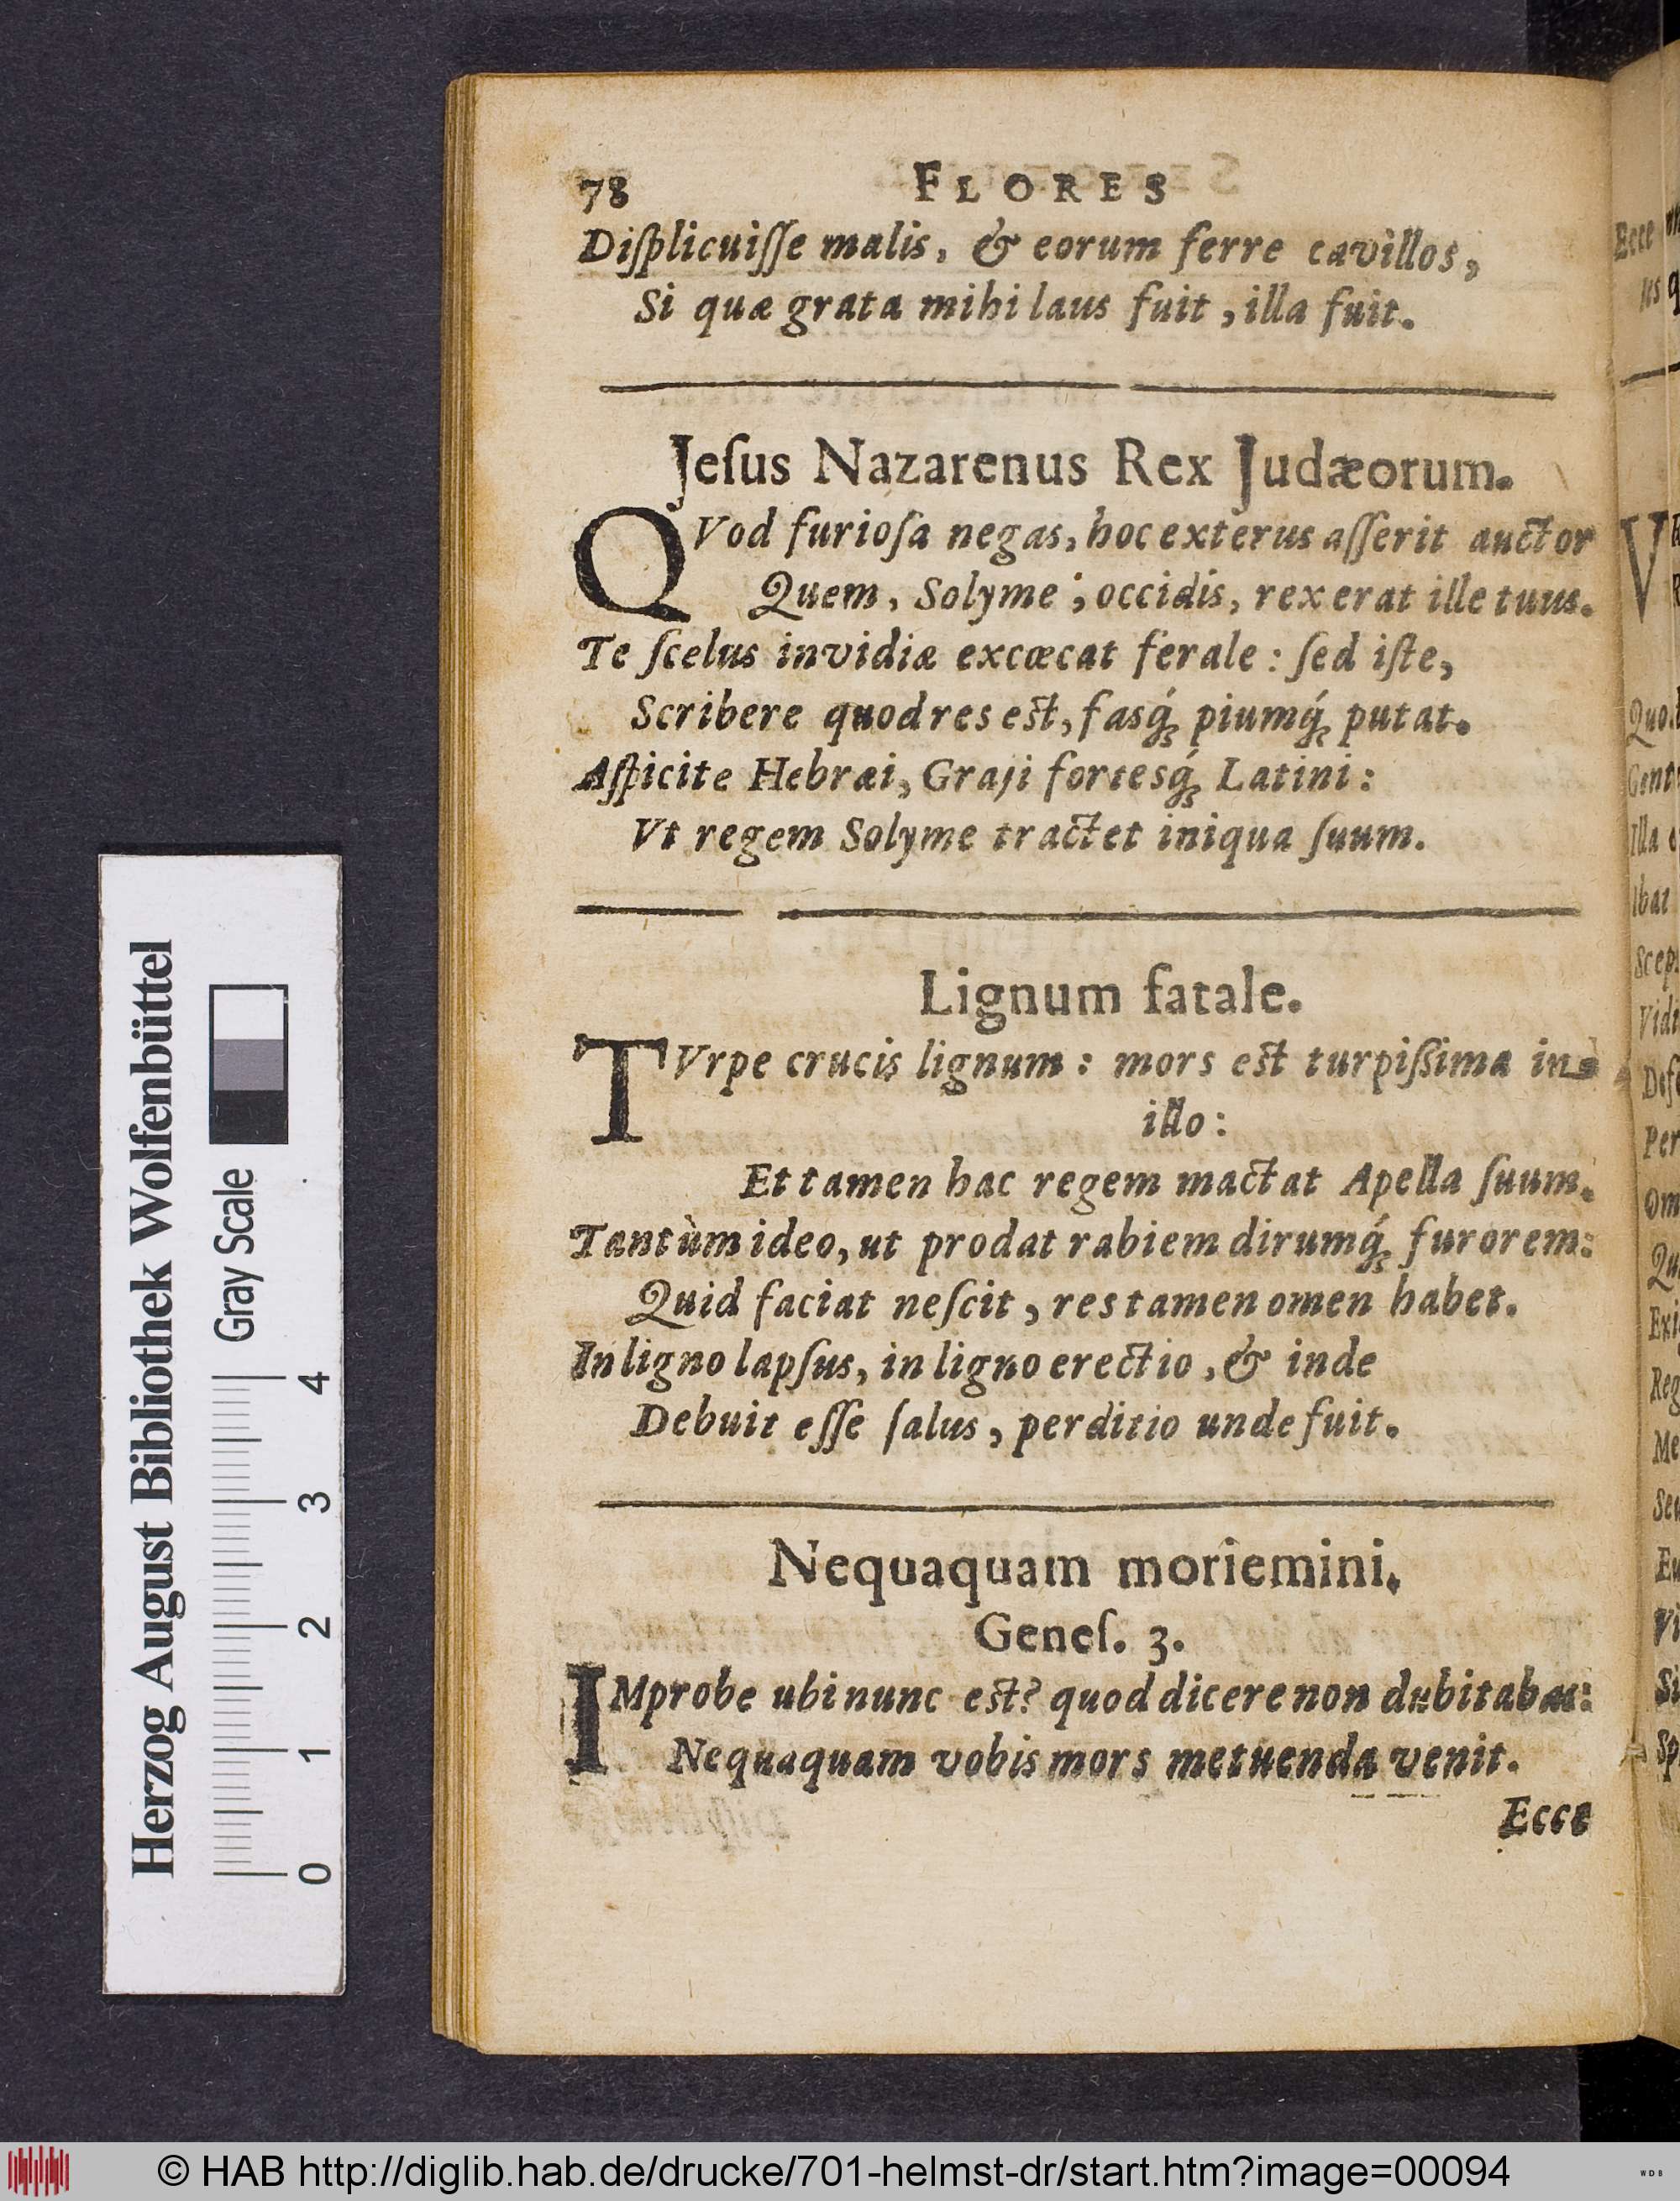 78 FLORES
Diſplicuiſſe malis, & eorum ferre cavillos,
Si quæ grata mihi laus fuit, illa fuit.
Jeſus Nazarenus Rex Judæorum.
QVod furioſa negas, hoc exterus aſſerit auctor
Quem, Solyme; occidis, rex erat ille tuus.
Te ſcelus invidiæ excœcat ferale: ſed iſte,
Scribere quod res est, fasq́; piumq́; putat.
Aſpicite Hebræi, Graji fortesq́; Latini:
Vt regem Solyme tractet iniqua ſuum.
Lignum fatale.
TVrpe crucis lignum: mors est turpiſsima in
illo:
Et tamen hac regem mactat Apella ſuum.
Tantùm ideo, ut prodat rabiem dirumq́; furorem:
Quid faciat neſcit, res tamen omen habet.
In ligno lapſus, in ligno erectio, & inde
Debuit eſſe ſalus, perditio unde fuit.
Nequaquam moriemini.
Geneſ. 3.
IMprobe ubi nunc est? quod dicere non dubitabas:
Nequaquam vobis mors metuenda venit.
Ecce
Herzog August Bibliothek Wolfenbüttel
Gray Scale
0 1 2 3 4
© HAB http://diglib.hab.de/drucke/701-helmst-dr/start.htm?image=00094
WDB